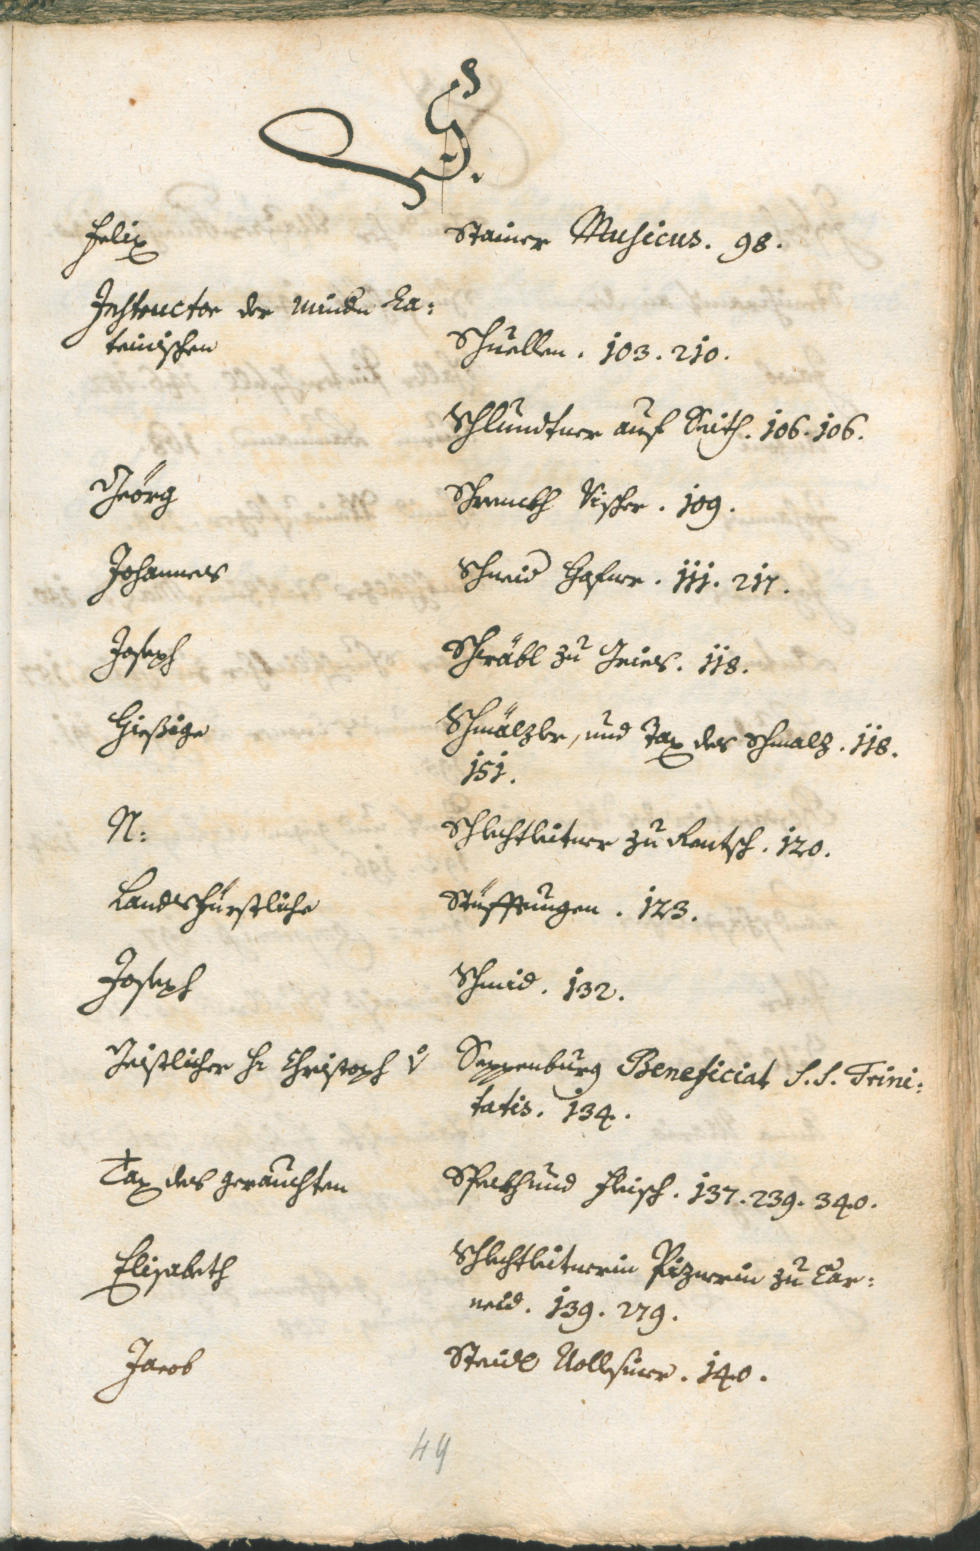 S.
Felix Stainer Musicus. 98.
Instructor der mindn La:
teinischen Schuellen. 103. 210.
Schlundtner auf Seith. 106. 106.
Geörg Schrenckh Vischer. 109.
Johannes Schmid Hafner. 111. 217.
Joseph Schräbl zu Gries. 118.
Hiesige Schmälzler, und Tax des Schmalz. 118.
151.
N: Schlechtleitner zu Rentsch. 120.
Landsfürstliche Stüfftungen. 123.
Joseph Schmid. 132.
Geistlicher H: Christoph v Seppenburg Beneficiat S.S. Trini:
tatis. 134.
Tax des gerauchten Speckh und Fleisch. 137. 239. 340.
Elisabeth Schlechtleitnerin Piznerin zu Car:
neid. 139. 279.
Jacob Steidl 140.
49